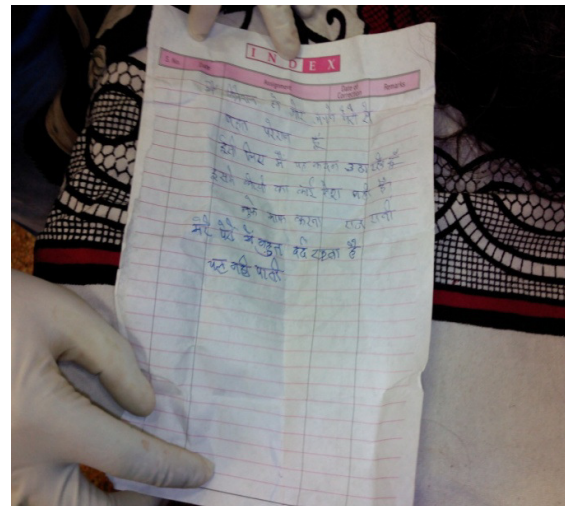 INDEX
S. No. Date Assignment Date of Correction Remarks
से और अपने पैरो से
बहुत परेशान हूं
इसके लिए में यह कदम उठा रही हूँ
इसमे किसी का कोई दोश नही है
मुझे माफ करना राज रानी
मेरे पैरो में बहुत दर्द रहता है
चल नही पाती